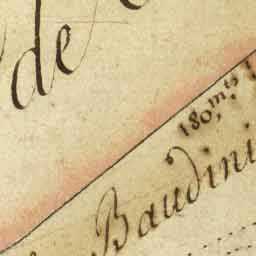 de
180,mts
Baudini